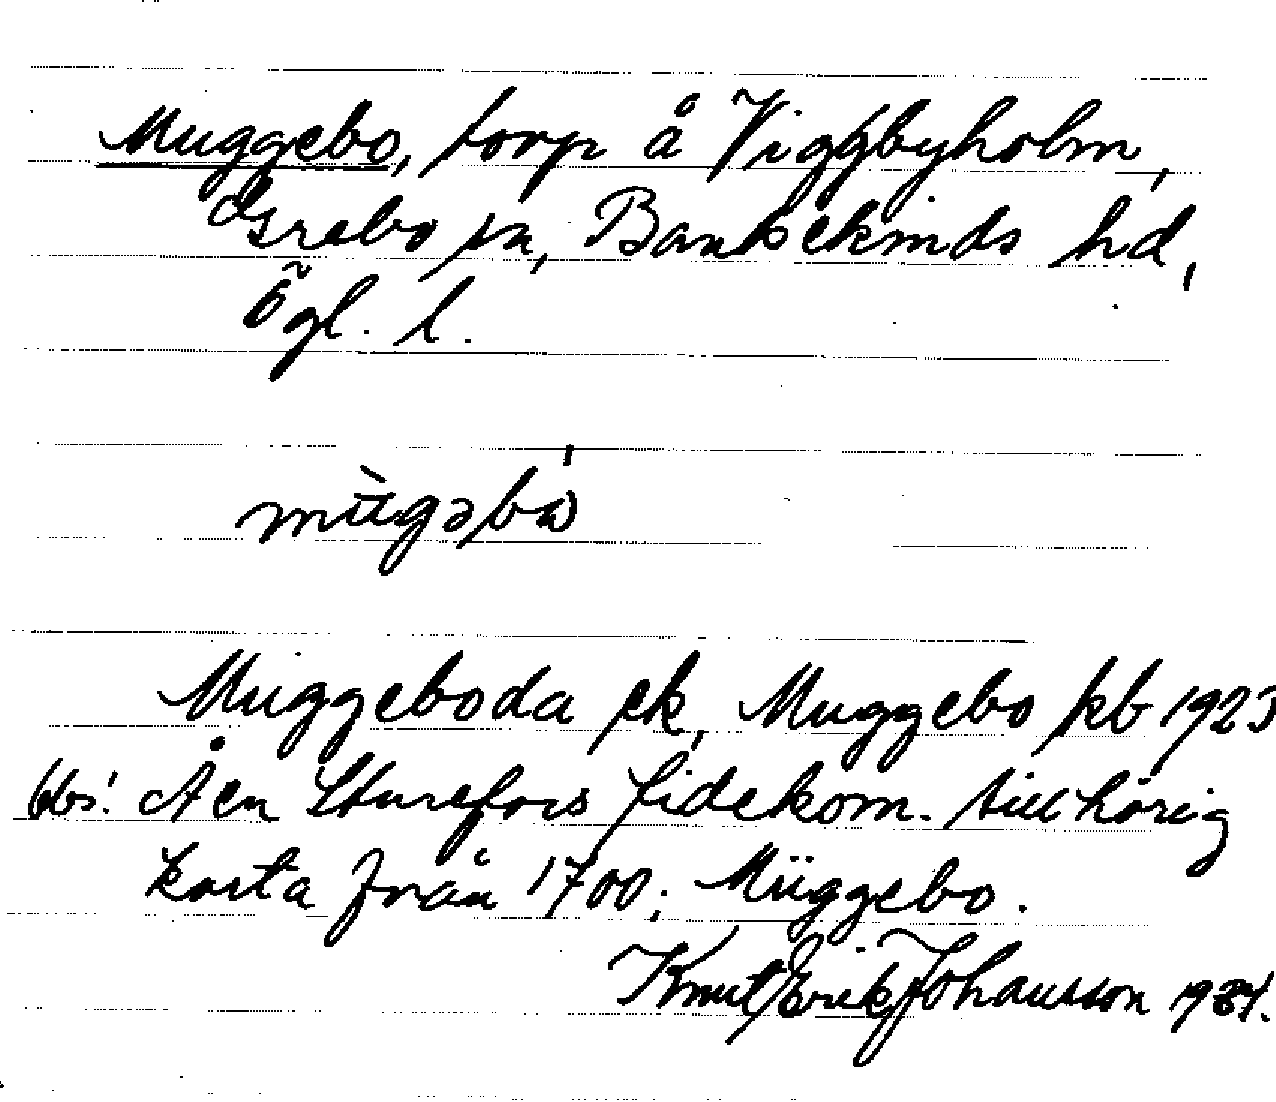 Muggebo, torp å Viggbyholm,
Grebo sn, Bankekinds hd,
Ögl. l.
mùgəbω
Muggeboda ek, Muggebo kb 1923
Obs! Å en Sturefors fidekom. tillhörig
karta från 1700; Müggebo.
Knut Erik Johansson 1934.